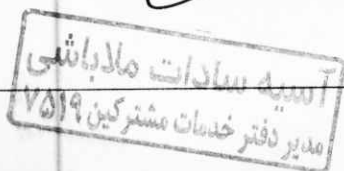 آسیه سادات ملاباشی
مدیر دفتر خدمات مشترکین ۷۵۱۹